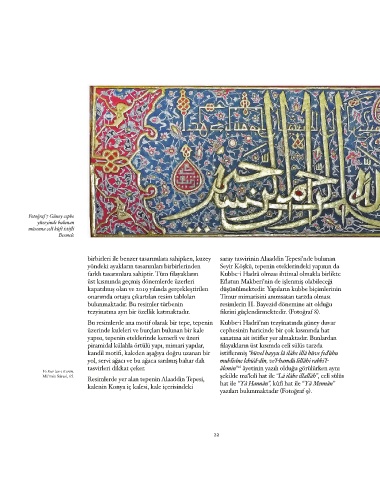 Fotoğraf 7 Güney cephe
yüzeyinde bulunan
müsenna celi kûfî istifli
Besmele
birbirleri ile benzer tasarımlara sahipken, kuzey
yöndeki ayakların tasarımları birbirlerinden
farklı tasarımlara sahiptir. Tüm filayakların
üst kısmında geçmiş dönemlerde üzerleri
kapatılmış olan ve 2019 yılında gerçekleştirilen
onarımda ortaya çıkartılan resim tabloları
bulunmaktadır. Bu resimler türbenin
tezyinatına ayrı bir özellik katmaktadır.
Bu resimlerde ana motif olarak bir tepe, tepenin
üzerinde bedenleri ve burçları bulunan bir kale
yapısı, tepenin eteklerinde kemerli ve üzeri
piramidal külahla örtülü yapı, mimari yapılar,
kandil motifi, kaleden aşağıya doğru uzanan bir
yol, servi ağacı ve bu ağaca sarılmış bahar dalı
tasvirleri dikkat çeker.
Resimlerde yer alan tepenin Alaaddin Tepesi,
kalenin Konya iç kalesi, kale içerisindeki
saray tasvirinin Alaaddin Tepesi'nde bulunan
Seyir Köşkü, tepenin eteklerindeki yapının da
Kubbe-i Hadrâ olması ihtimal olmakla birlikte
Eflatun Makberi'nin de işlenmiş olabileceği
düşünülmektedir. Yapıların kubbe biçimlerinin
Timur mimarisini anımsatan tarzda olması
resimlerin II. Bayezid dönemine ait olduğu
fikrini güçlendirmektedir. (Fotoğraf 8).
Kubbe-i Hadrâ'nın tezyinatında güney duvar
cephesinin haricinde bir çok kısmında hat
sanatına ait istifler yer almaktadır. Bunlardan
filayakların üst kısmında celi sülüs tarzda
istiflenmiş "hüvel hayyu lâ ilâhe illâ hüve fed'ûhu
muhlisîne lehüd-dîn, ve'l-hamdü lillâhi rabbi'l-
âlemîn" âyetinin yazılı olduğu görülürken aynı
şekilde ma'kıli hat ile "Lâ ilâhe illallah", celî sülüs
hat ile "Yâ Hannân", kûfî hat ile "Yâ Mennân"
yazıları bulunmaktadır (Fotoğraf 9).